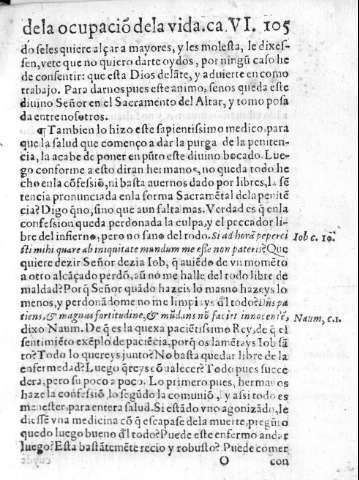 de la ocupació dela vida.ca.VI. 105
do seles quiere alçar a mayores, y les molesta, le dixes-
sen, vete que no quiero darte oydos, por ningũ caso he
de consentir: que esta Dios delãte, y aduierte en como
trabajo. Para darnos pues este animo, senos queda este
diuino Señor en el Sacramento del Altar, y tomo posa
da entre nosotros.
¶Tambien lo hizo este sapientissimo medico, para
que la salud que començo a dar la purga de la peniten-
cia, la acabe de poner en pũto este diuino bocado. Lue-
go conforme a esto diran hermanos, no queda todo he
cho enla cõfessiõ, ni basta auernos dado por libres, la sẽ
tencia pronunciada enla forma Sacramẽtal dela penitẽ
cia? Digo q̃no, sino que aun falta mas. Verdad es q̃ enla
confession queda perdonada la culpa, y el peccador li-
bre del infierno, pero no sano del todo. Si ad horã peperci
sti mihi quare ab iniquitate mundum me esse non pateris? Que
Iob c. 10.
quiere dezir Señor dezia Iob, q̃ auiẽdo de vn momẽto
a otro alcãçado perdõ, aũ no me halle del todo libre de
maldad? Porq̃ Señor quãdo hazeis lo mas no hazeys lo
menos, y perdonãdome no me limpiays d'l todo? Dñs pa
tiens, & magnus fortitudine, & mũdans nõ faciet innocentẽ,
Naum, c.1.
dixo Naum. De q̃ es la quexa paciẽtissimo Rey, de q̃ el
sentimiẽto exẽplo de paciẽcia, porq̃ os lamẽtays Iob sã
to? Todo lo quereys junto? No basta quedar libre de la
enfermedad? Luego q̃reys cõualecer? Todo pues succe
dera, pero su poco a poco. Lo primero pues, hermanos
haze la confessiõ lo segũdo la comuniõ, y assi todo es
manester para entera salud. Si estãdo vno agonizãdo, le
diesse vna medicina cõ q̃ escapasse de la muerte, pregũto
quedo luego bueno d'l todo? Puede este enfermo andar
luego? Esta bastãtemẽte recio y robusto? Puede comer
O con